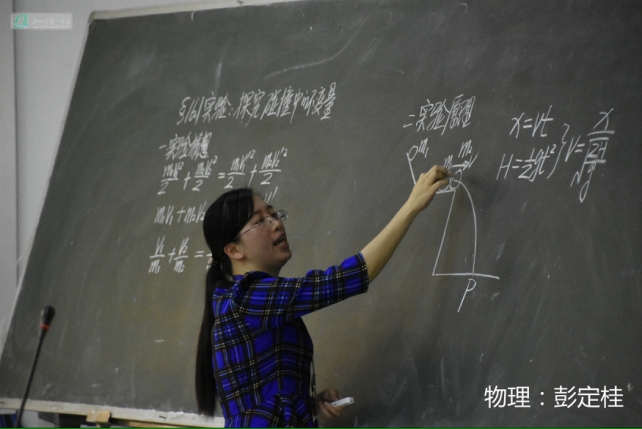 §16.1实验:探究碰撞中的不变量
一.实验猜想
m₁v₁²/2 + m₂v₂²/2 = m₁v₁'²/2 + m₂v₂'²/2
m₁v₁ + m₂v₂
v₁/m₁ + v₂/m₂ =
二.实验原理
m₁
m₂
P
x=vt
H=½gt²
v=x/√(2H/g)
物理：彭定桂